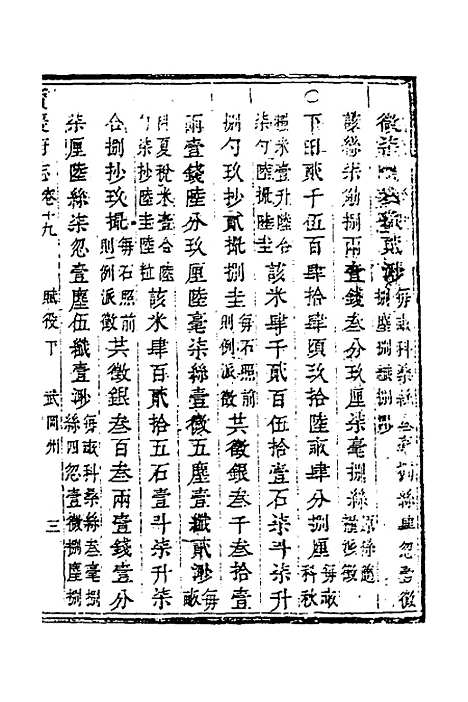 徵柒 貳渺 每畝科桑絲叁毫 絲肆忽壹微
捌塵捌纖捌渺
該絲柒觔捌兩壹錢叁分玖厘柒毫捌絲
○下田貳千伍百肆拾肆頃玖拾陸畝肆分捌厘 每畝科秋
糧米壹升陸合
柒勺陸撮圭 該米肆千貳百伍拾壹石柒斗柒升
捌勺玖抄貳撮捌圭 每石照前則例派徵 共徵銀叁千叁拾壹
兩壹錢陸分玖厘陸毫柒絲壹微五塵壹纖貳渺 每畝
科夏稅米壹合陸
勺柒抄陸圭陸粒 該米肆百貳拾五石壹斗柒升柒
合捌抄玖撮 每石照前則例派徵 共徵銀叁百叁兩壹錢壹分
柒厘陸絲柒忽壹塵伍纖壹渺 每畝科桑絲叁毫捌
絲四忽壹微捌塵捌
寶慶府志卷十九 賦役下 武岡州 三